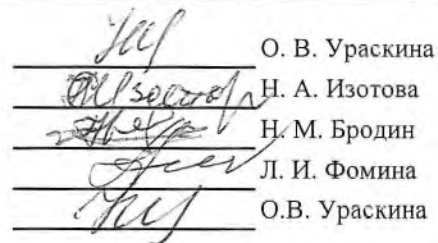 О. В. Ураскина
Н. А. Изотова
Н. М. Бродин
Л. И. Фомина
О.В. Ураскина